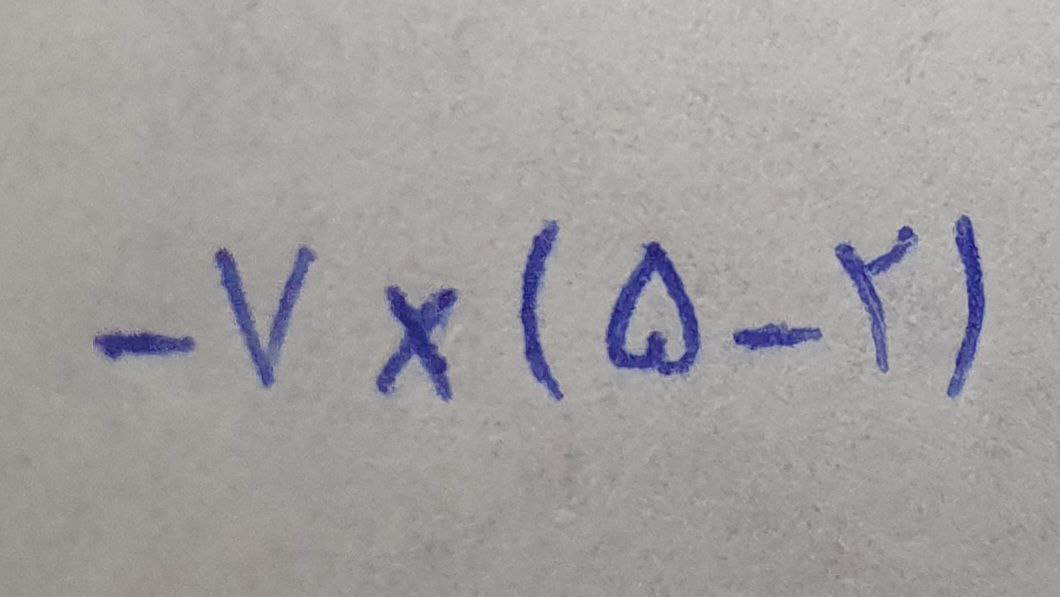 -۷ × (۵-۲)